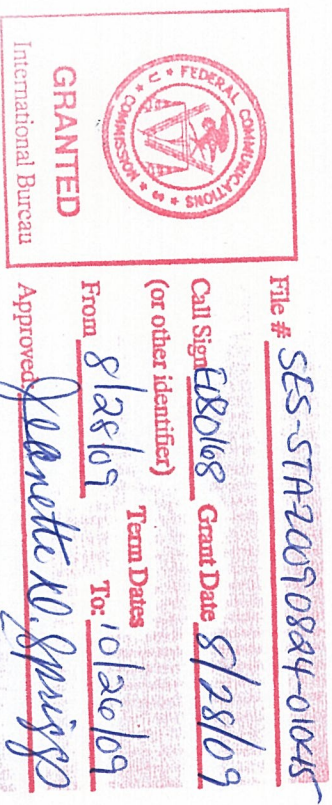 FEDERAL COMMUNICATIONS COMMISSION
U S
GRANTED
International Bureau
File # SES-STA20090824-01045
Call Sign E80168 Grant Date 8/28/09
(or other identifier)
Term Dates
From 8/28/09 To: 10/26/09
Approved: Jeanette W. Spriggs